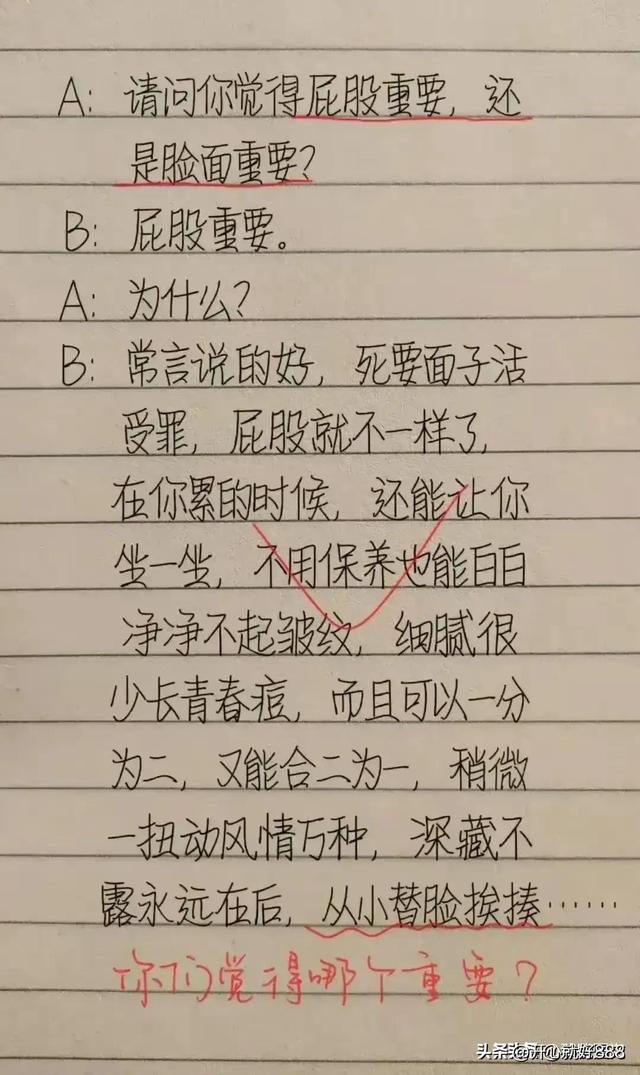 A: 请问你觉得屁股重要，还
是脸面重要？
B: 屁股重要。
A: 为什么？
B: 常言说的好，死要面子活
受罪，屁股就不一样了，
在你累的时候，还能让你
坐一坐，不用保养也能白白
净净不起皱纹，细腻很
少长青春痘，而且可以一分
为二，又能合二为一，稍微
一扭动风情万种，深藏不
露永远在后，从小替脸挨揍……
你们觉得哪个重要？
头条 @开心就好888